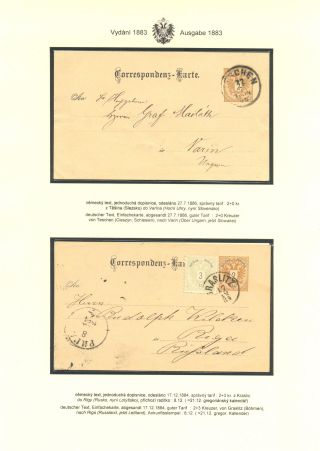 Vydání 1883 Ausgabe 1883
Correspondenz-Karte.
Graf
Varin
Ungarn
TESCHEN
německý text, jednoduchá dopisnice, odesláno 27.7.1886, správný tarif 2+0 kr.
z Těšína (Slezsko) do Varína (Horní Uhry, nyní Slovensko)
deutscher Text, Einfachekarte, abgesandt 27.7.1886, guter Tarif : 2+0 Kreuzer
von Teschen (Cieszyn, Schlesien), nach Varin (Ober Ungarn, jetzt Slowakei)
Correspondenz-Karte
3
GRASLITZ
Herrn
Rudolph
Riga
Rußland
německý text, jednoduchá dopisnice, odesláno 17.12.1884, správný tarif : 2+3 kr. z Kraslic
do Rigy (Rusko, nyní Lotyšsko), příchozí razítko : 8.12. ( =21.12. gregoriánský kalendář)
deutscher Text, Einfachekarte, abgesandt 17.12.1884, guter Tarif : 2+3 Kreuzer, von Graslitz (Böhmen),
nach Riga (Russland, jetzt Lettland), Ankunftsstempel : 8.12. ( =21.12. gregor. Kalender)